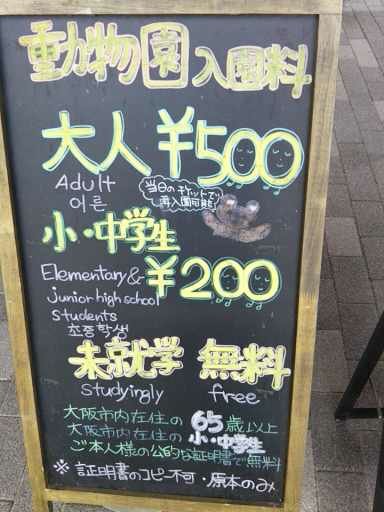 動物園入園料
大人 ¥500
Adult
어른
当日のチケットで
再入園可能
小・中学生
Elementary &
junior high school
students
초중학생
¥200
未就学 無料
Studyingly free
大阪市内在住の65歳以上
大阪市内在住の小・中学生
ご本人様の公的な証明書で無料
※証明書のコピー不可・原本のみ